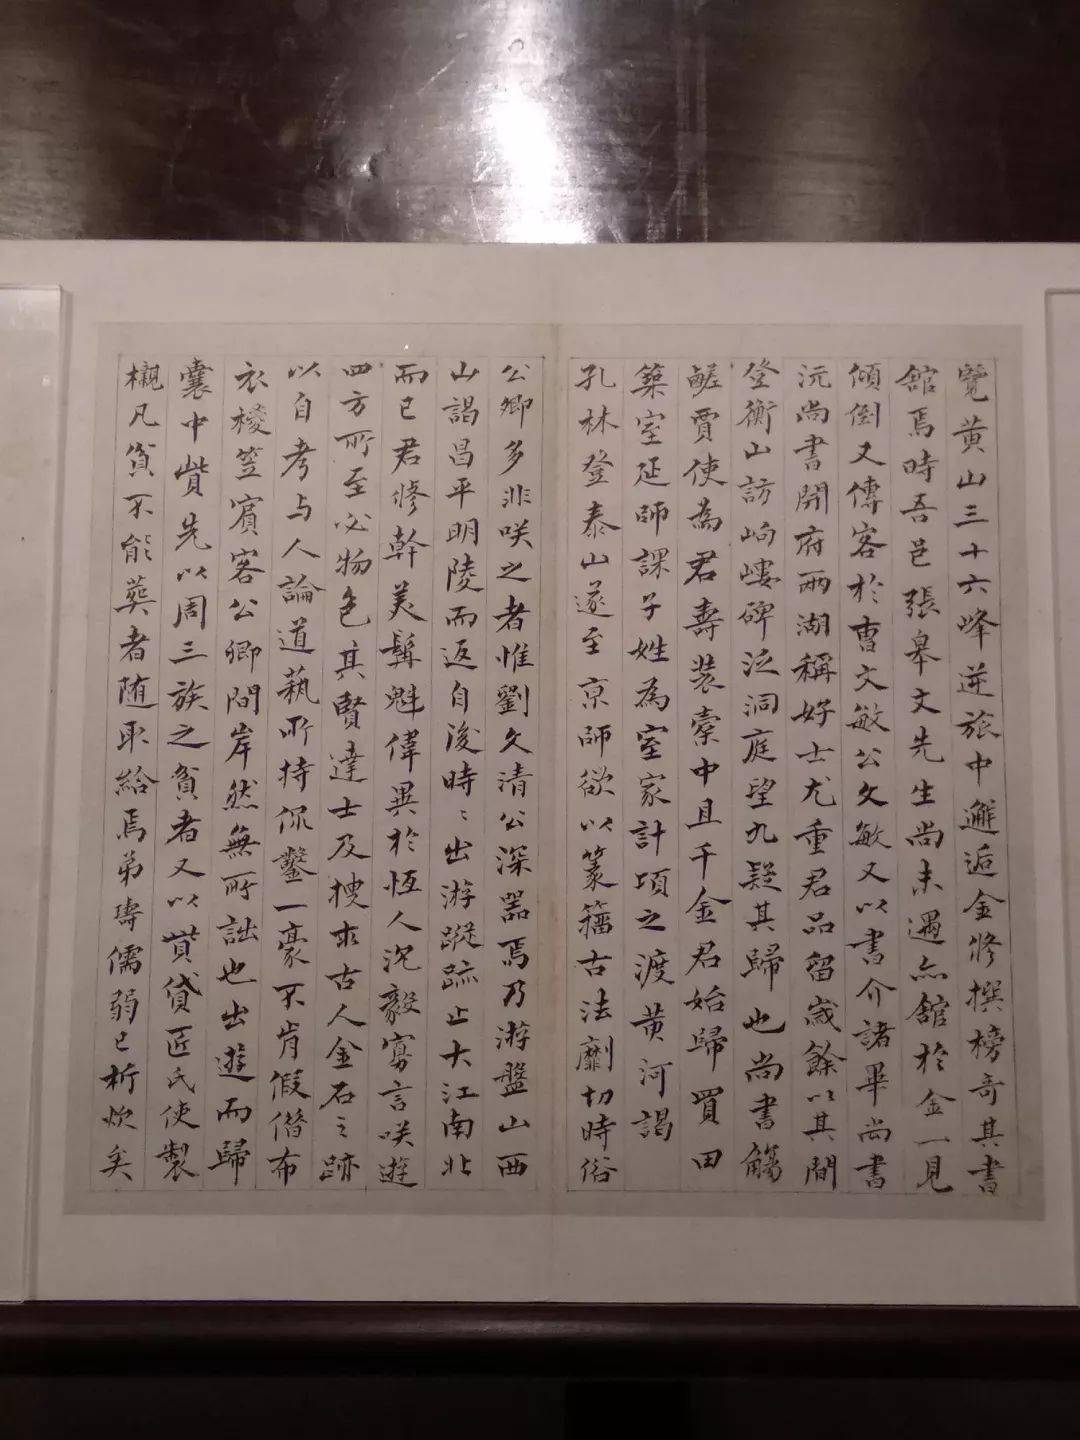 覽黃山三十六峰逆旅中邂逅金修撰榜奇其書
舘焉時吾邑張皋文先生尚未遇亦舘於金一見
傾倒又傳客於曹文敏公文敏又以書介諸畢尚書
沅尚書開府兩湖稱好士尤重君品留歲餘以其間
登衡山訪岣嶁碑泛洞庭望九疑其歸也尚書觴
鹺賈使為君壽裝橐中且千金君始歸買田
築室延師課子姓為室家計項之渡黃河謁
孔林登泰山遂至京師欲以篆籀古法劘切時俗
公卿多非咲之者惟劉文清公深器焉乃游盤山西
山謁昌平明陵而返自後時〻出游蹤跡止大江南北
而已君修幹美髯魁偉異於恆人沉毅寡言咲遊
四方所至必物色其賢達士及搜求古人金石之跡
以自考与人論道萟所持侃鑿一豪不肯假偕布
衣椶笠賓客公卿間岸然無所詘也出遊而歸
囊中貲先以周三族之貧者又以貰貸匠氏使製
櫬凡貧不能葬者随取給焉弟璹儒弱已析炊矣